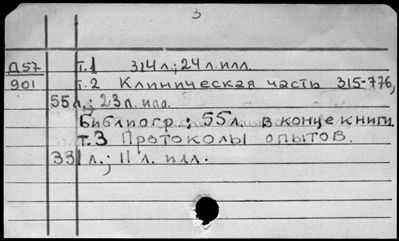 3
Д57 т.1 314 л.; 24 л. илл.
901 т.2 Клиническая часть 315-776,
55 л.; 23 л. илл.
Библиогр.; 55 л. в конце книги
т.3 Протоколы опытов.
331 л.; 11 л. илл.